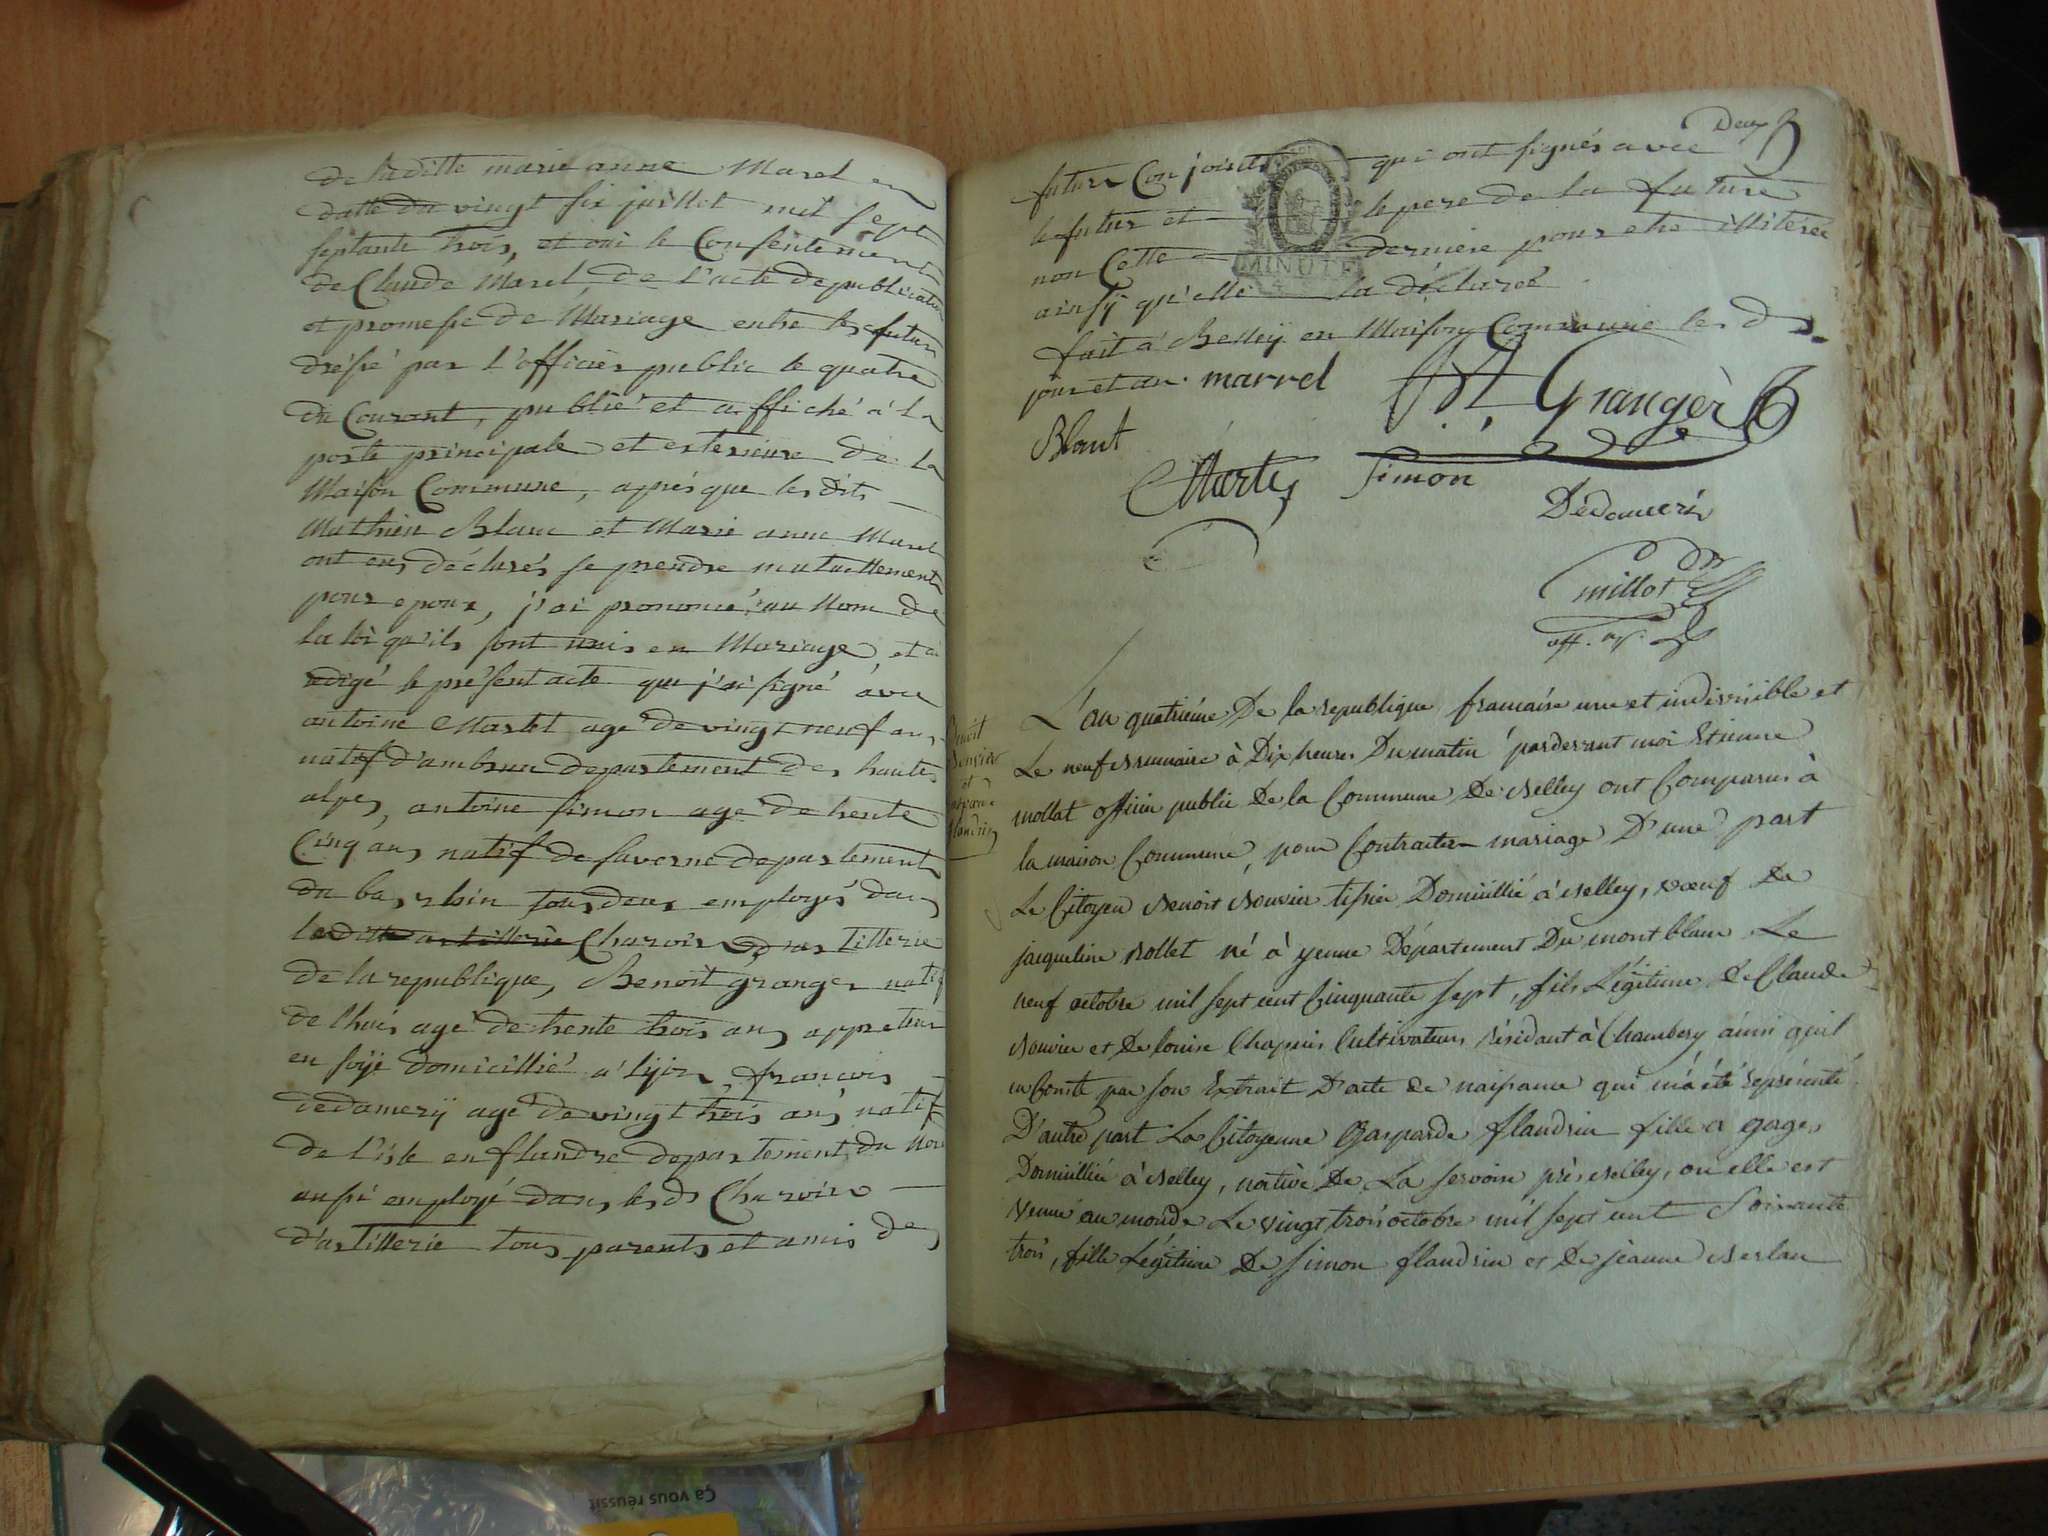 de laditte marie anne Marel en
datte du vingt six juillet mil sept
septante trois, et oui le Consentement
de Claude Marel, de l'acte de publication
et promesse de Mariage entre les futurs
dressé par l'officier public le quatre
du Courant, publié et affiché à la
porte principale et exterieure de la
Maison Commune, après que les dits
Mathieu Blanc et Marie anne Marel
ont eus déclarés se prendre mutuellement
pour epoux, j'ai prononcé au Nom de
la loi qu'ils sont unis en Mariage, et ai
redigé le présent acte que j'ai signé avec
antoine Martel agé de vingt neuf ans
natif d'ambrun departement des hautes
alpes, antoine simon age de trente
Cinq ans natif de saverne departement
du bas rhin tous deux employés dans
laditte artillerie Charois d'artillerie
de la republique, Benoit granger natif
de lhuis agé de trente trois ans appreteur
en soÿe domicillié a lÿon, francois
dedamerÿ agé de vingt trois ans natif
de l'isle en flandre departement du Nord
aussi employé dans lesds Charois
d'artillerie tous parents et amis des
Deux
futurs Conjoints qui ont signés avec
le futur et le pere de la future
non Cette derniere pour etre illiterée
ainsÿ qu'elle la déclaré
fait à Belleÿ en Maison Commune les ds
jour et an. marrel
Bt Granger
Blant
Martel simon
Dedameri
millot
off. p.
Benoit
Bouvier
et
gasparde
flandrin
L'an quatriéme De la republique francaise une et indivisible et
Le neuf Brumaire à Dix heures Du matin pardevant moi Etienne
mollat officier public De la Commune De Belley ont Comparus à
la maison Commune, pour Contracter mariage D'une part
Le Citoyen Benoit Bouvier tissier Domicillié à Belley, veuf De
jacqueline Rollet né à yenne Département Du mont blanc Le
neuf octobre mil sept cent Cinquante sept, fils Légitime De Claude
Bouvier et De louise Chapuis Cultivateurs résidant à Chambery ainsi quil
en Conste par son Extrait D'acte de naissance qui m'a été représenté
D'autre part La Citoyenne Gasparde flandrin fille a gages
Domicilliée à Belley, native De La servoire près Belley, ou elle est
venue au monde Le vingt trois octobre mil sept cent Soixante
trois, fille Légitime De simon flandrin et De jeanne Berlan
MINUTE
Ça vous réussit